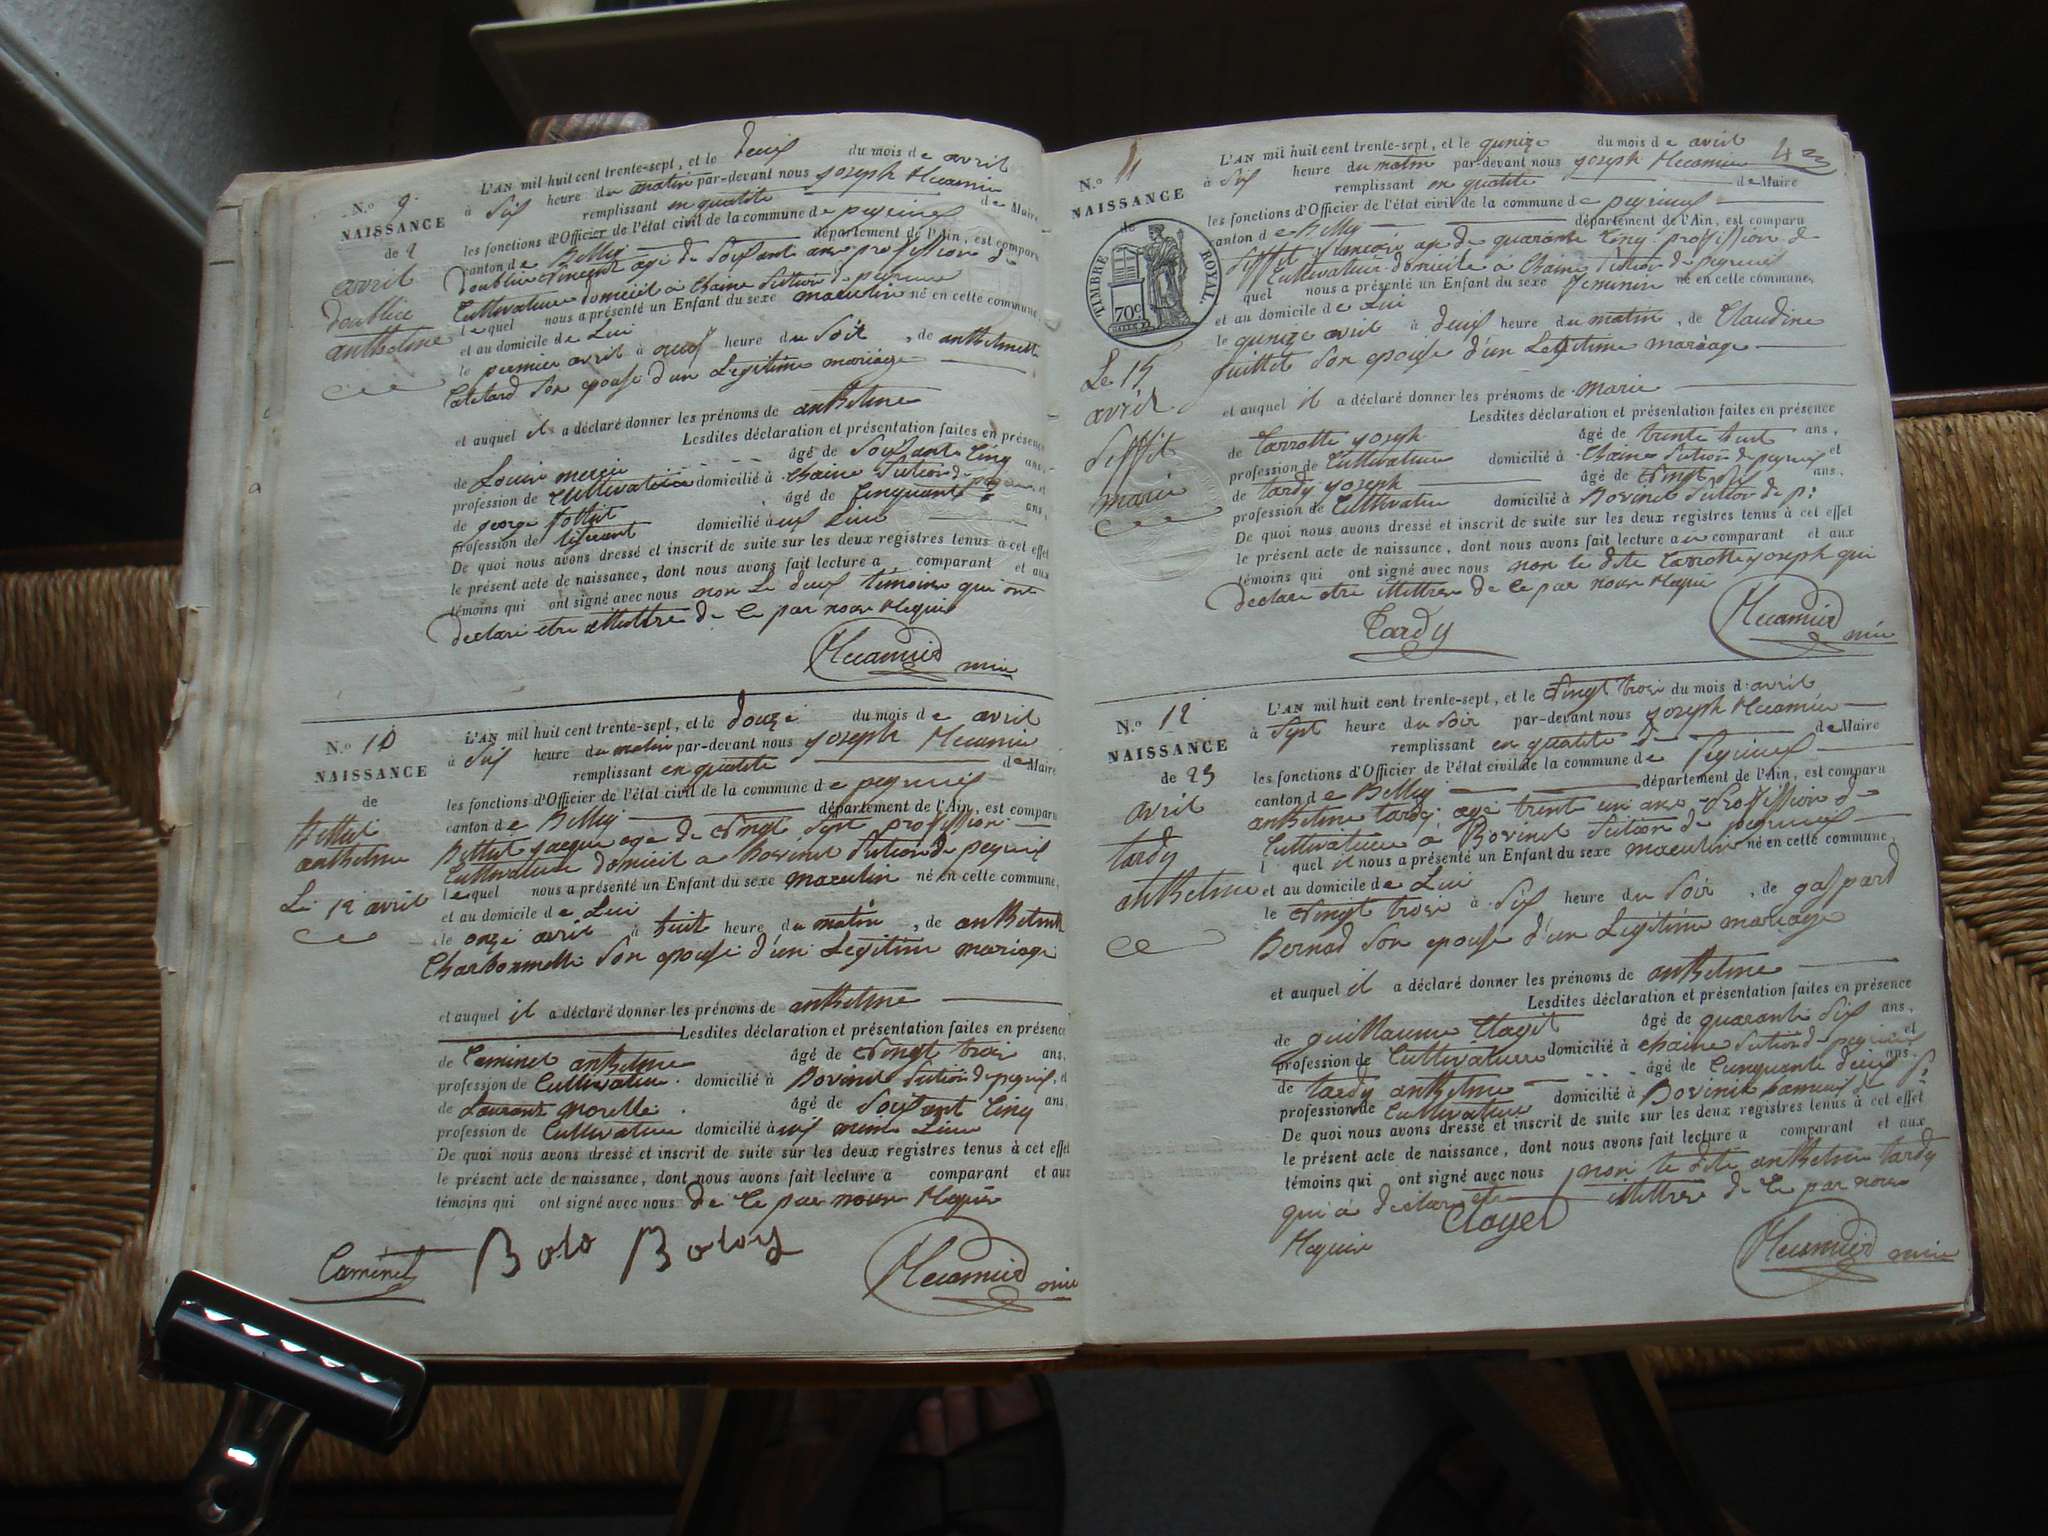 N.o 9.
NAISSANCE
de 2
avril
doublier
anthelme
L'AN mil huit cent trente-sept, et le deux du mois de avril
à Six heure du matin par-devant nous joseph Mecamier
remplissant en qualité de Maire
les fonctions d'Officier de l'état civil de la commune de peyrieu
canton de Belley département de l'Ain, est comparu
vincent agé de Soixante ans proffission de
Cultivateur domicile a Chaine Sution de
lequel nous a présenté un Enfant du sexe masculin né en cette commune,
et au domicile de Lui
le premier avril à neuf heure du Soir, de anthelmette
Son epouse d'un Legitime mariage
et auquel il a déclaré donner les prénoms de anthelme
Lesdites déclaration et présentation faites en présence
de Louis mercier âgé de Soixante Cinq ans,
profession de Cultivateur domicilié à Chaine Sution de et
de george âgé de Cinquante ans,
profession de domicilié à lieu
De quoi nous avons dressé et inscrit de suite sur les deux registres tenus à cet effet
le présent acte de naissance, dont nous avons fait lecture a comparant et aux
témoins qui ont signé avec nous non Le deux témoins qui ont
declaré etre de Ce par nous Requis
Mecamier
N.o 10
NAISSANCE
de
anthelme
Le 12 avril
L'AN mil huit cent trente-sept, et le douze du mois de avril
à Six heure du matin par-devant nous joseph Mecamier
remplissant en qualité de Maire
les fonctions d'Officier de l'état civil de la commune de peyrieu
canton de Belley département de l'Ain, est comparu
jacque agé de vingt Sept proffission
Cultivateur domicile a Bovinel Sution de peyrieu
lequel nous a présenté un Enfant du sexe masculin né en cette commune,
et au domicile de Lui
le onze avril à huit heure du matin, de anthelmette
Charbonnelle Son epouse d'un Legitime mariage
et auquel il a déclaré donner les prénoms de anthelme
Lesdites déclaration et présentation faites en présence
de Caminet anthelme âgé de vingt trois ans,
profession de Cultivateur domicilié à Bovinel Sution de peyrieu, et
de Laurent Morelle âgé de Soixant Cinq ans,
profession de Cultivateur domicilié à meme Lieu
De quoi nous avons dressé et inscrit de suite sur les deux registres tenus à cet effet
le présent acte de naissance, dont nous avons fait lecture a comparant et aux
témoins qui ont signé avec nous de Ce par nous Requis
Caminet
Mecamier
N.o 11
NAISSANCE
de
TIMBRE ROYAL.
70c
Le 15
avril
marie
L'AN mil huit cent trente-sept, et le quinze du mois de avril
à Six heure du matin par-devant nous joseph Mecamier
remplissant en qualité de Maire
les fonctions d'Officier de l'état civil de la commune de peyrieu
canton de Belley département de l'Ain, est comparu
francois age de quarante Cinq proffission de
Cultivateur domicile a Chaine Sution de peyrieu
quel nous a présenté un Enfant du sexe feminin né en cette commune,
et au domicile de Lui
le quinze avril à deux heure du matin, de Claudine
Juillet Son epouse d'un Legitime mariage
et auquel il a déclaré donner les prénoms de marie
Lesdites déclaration et présentation faites en présence
de Carrotte joseph âgé de trente huit ans,
profession de Cultivateur domicilié à Chaine Sution de peyrieu et
de tardy joseph âgé de vingt ans,
profession de Cultivateur domicilié à Bovinel Sution de p:
De quoi nous avons dressé et inscrit de suite sur les deux registres tenus à cet effet
le présent acte de naissance, dont nous avons fait lecture au comparant et aux
témoins qui ont signé avec nous non le dite Carrotte joseph qui
declare etre illettree de Ce par nous Requis
Tardy
Mecamier
N.o 12
NAISSANCE
de 23
avril
tardy
anthelme
L'AN mil huit cent trente-sept, et le vingt trois du mois d avril
à Sept heure du Soir par-devant nous joseph Mecamier
remplissant en qualité de Maire
les fonctions d'Officier de l'état civil de la commune de Peyrieu
canton de Belley département de l'Ain, est comparu
anthelme tardy agé trent un ans Proffission de
Cultivateur a Bovinel Sution de peyrieu
l quel il nous a présenté un Enfant du sexe masculin né en cette commune,
et au domicile de Lui
le vingt trois à Six heure du Soir, de gaspard
Bernad Son epouse d'un Legitime mariage
et auquel il a déclaré donner les prénoms de anthelme
Lesdites déclaration et présentation faites en présence
de guillaume Clayet âgé de quarante Six ans,
profession de Cultivateur domicilié à Chaine Sution de peyrieu et
de tardy anthelme âgé de Cinquante deux ans.
profession de Cultivateur domicilié à Bovinel
De quoi nous avons dressé et inscrit de suite sur les deux registres tenus à cet effet
le présent acte de naissance, dont nous avons fait lecture a comparant et aux
témoins qui ont signé avec nous non le dite anthelme tardy
qui a déclaré etre illettree de Ce par nous
Requis Clayet
Mecamier